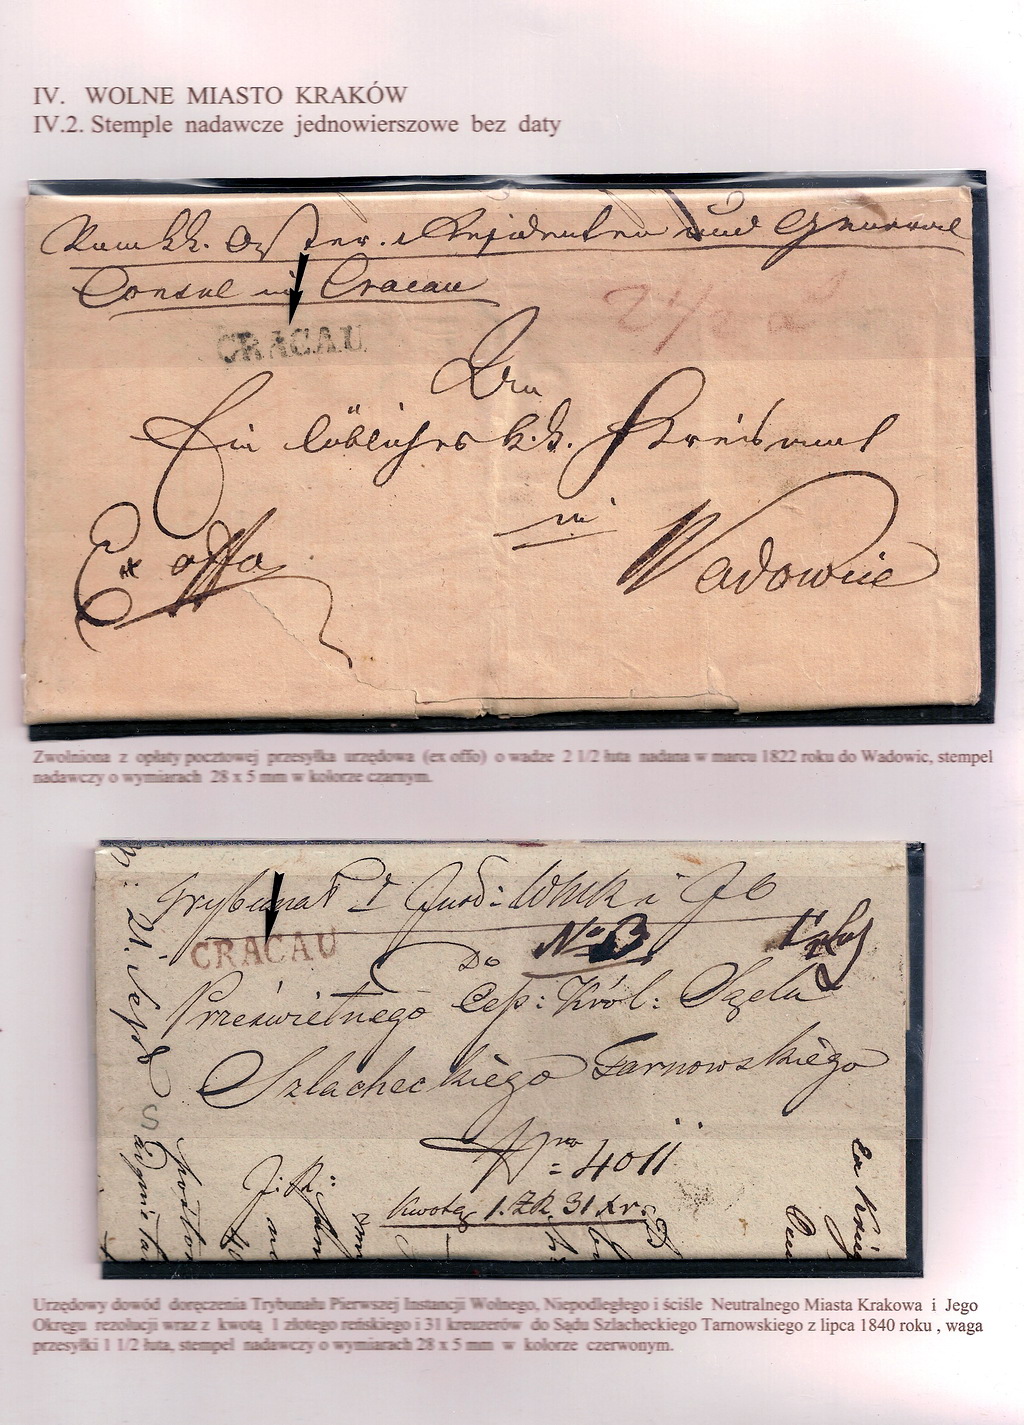 IV. WOLNE MIASTO KRAKÓW
IV.2. Stemple nadawcze jednowierszowe bez daty
Vom kk. Oester. Residenten und General
Consul in Cracau
CRACAU
An
Ein löbliches k.k. Kreisamt
in
Ex offo
Wadowice
Zwolniona z opłaty pocztowej przesyłka urzędowa (ex offo) o wadze 2 1/2 łuta nadana w marcu 1822 roku do Wadowic, stempel
nadawczy o wymiarach 28 x 5 mm w kolorze czarnym.
Trybunał I
CRACAU
No 3
Do
Prześwietnego Ces: Król: Sądu
Szlacheckiégo Tarnowskiégo
Nro = 4011
Kwotą 1. ZR. 31 Xr.
Urzędowy dowód doręczenia Trybunału Pierwszej Instancji Wolnego, Niepodległego i ściśle Neutralnego Miasta Krakowa i Jego
Okręgu rezolucji wraz z kwotą 1 złotego reńskiego i 31 kreuzerów do Sądu Szlacheckiego Tarnowskiego z lipca 1840 roku , waga
przesyłki 1 1/2 łuta, stempel nadawczy o wymiarach 28 x 5 mm w kolorze czerwonym.